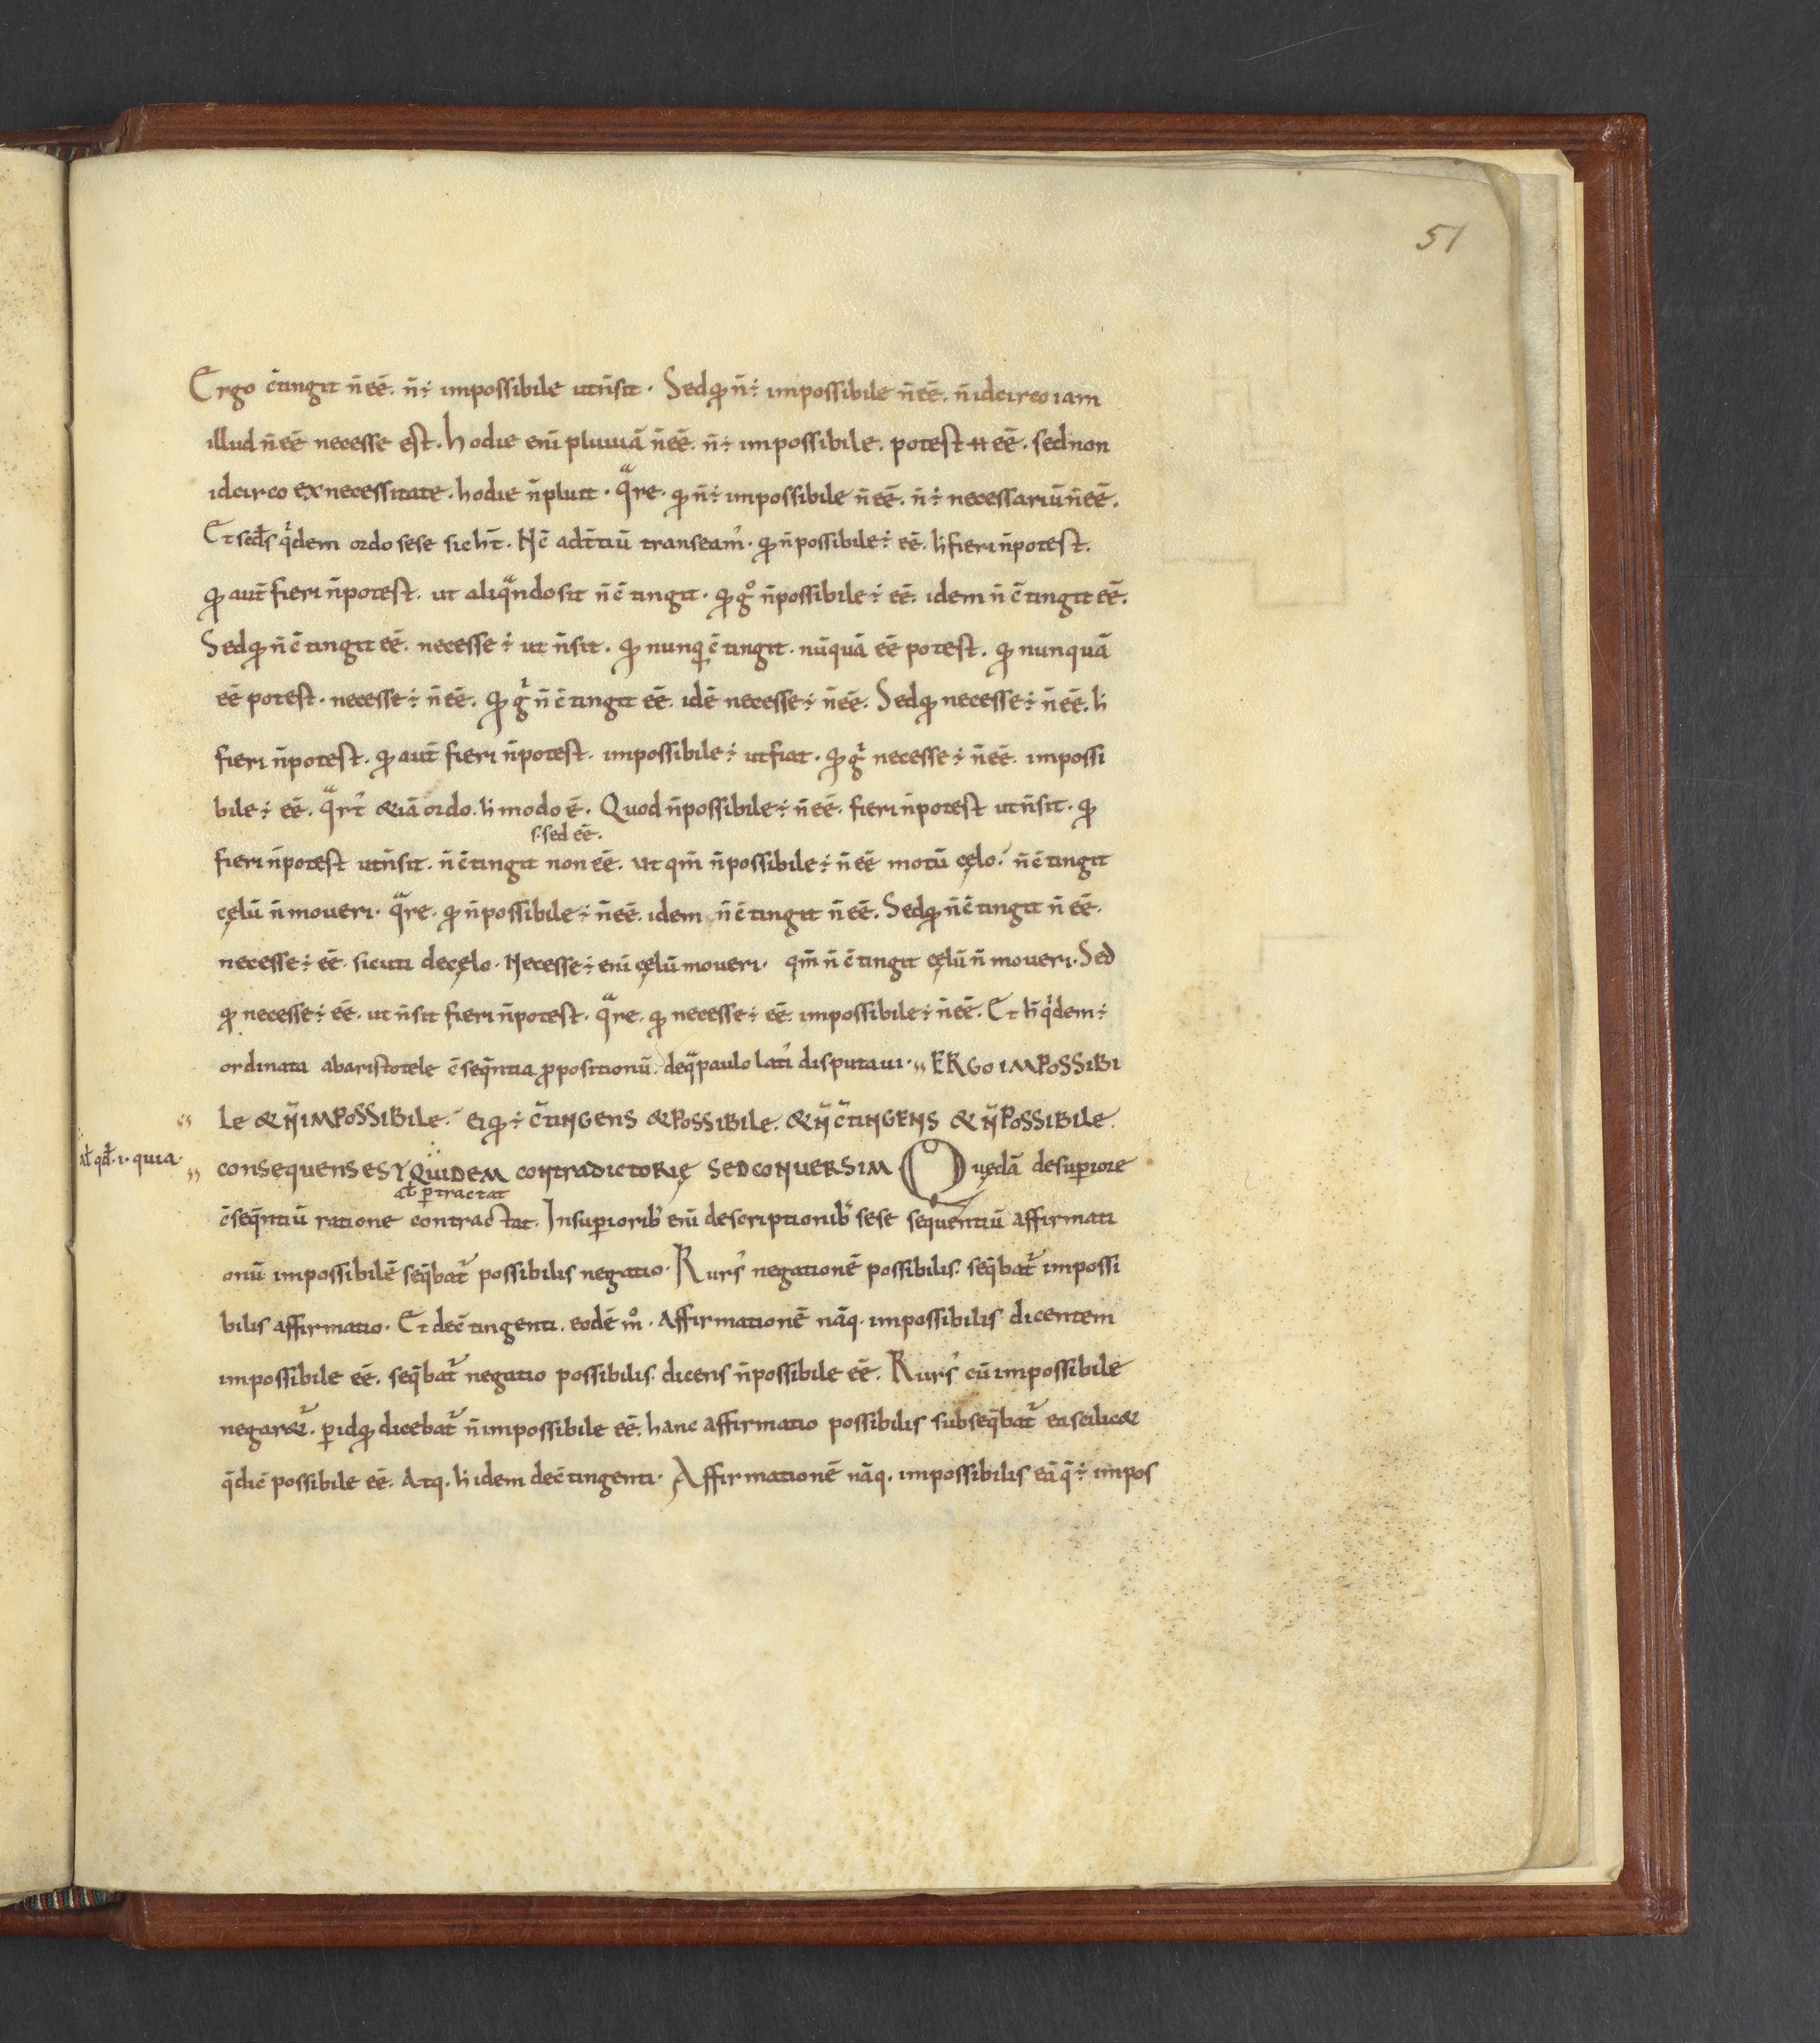 51
Ergo c̄tingit n̄ eē. n̄ ÷ impossibile ut n̄ sit. Sed qđ n̄ ÷ impossibile n̄ eē. n̄ idcirco iam
illud n̄ eē necesse est. hodie eni pluuiā n̄ eē. n̄ ÷ impossibile. potest н eē. sed non
idcirco ex necessitate. hodie n̄ pluit. qͣre. qđ n̄ ÷ impossibile n̄ eē. n̄ ÷ necessariū n̄ eē.
Et scđs qͥdem ordo sese sic ht̄. Nc̄ ad t̄tiū transeam᾽. qđ n̄ possibile ÷ eē. h fieri n̄ potest.
qđ aut̄ fieri n̄ potest. ut aliqͣndo sit n̄ c̄tingit. qđ gͦ n̄ possibile ÷ eē. idem n̄ c̄tingit eē.
Sed qđ n̄ c̄tingit eē. necesse ÷ ut n̄ sit. qđ nunq c̄tingit. nūquā eē potest. qđ nunquā
eē potest. necesse ÷ n̄ eē. qđ gͥ n̄ c̄tingit eē. idē necesse ÷ n̄ eē. Sed qđ necesse ÷ n̄ eē. h
fieri n̄ potest. qđ aut̄ fieri n̄ potest. impossibile ÷ ut fiat. qđ gͥ necesse ÷ n̄ eē. impossi
bile ÷ eē. qͣrt᾽ &iā ordo. h modo ē. Quod n̄ possibile ÷ n̄ eē. fieri n̄ potest ut n̄ sit. qđ
s. sed eē.
fieri n̄ potest ut n̄ sit. n̄ c̄tingit non eē. ut qm̄ n̄ possibile ÷ n̄ eē motū cęlo. n̄ c̄tingit
cęlū n̄ moueri. qͣre. qđ n̄ possibile ÷ n̄ eē. idem n̄ c̄tingit n̄ eē. Sed qđ n̄ c̄tingit n̄ eē.
necesse ÷ eē. sicuti de cęlo. Necesse ÷ eni cęlū moueri. qm̄ n̄ c̄tingit cęlū n̄ moueri. Sed
qđ necesse ÷ eē. ut n̄ sit fieri n̄ potest. qͣre. qđ necesse ÷ eē. impossibile ÷ n̄ eē. Et h qͥdem ÷
ordinata ab aristotele c̄seq̄ntia p̱positionū. de qͣ paulo lati᾽ disputaui. ,, ERGO IMPOSSIBI
LE & N̄ IMPOSSIBILE. EI QĐ ÷ C̄TINGENS & POSSIBILE. & N̄ C̄TINGENS & N̄ POSSIBILE.
at̄ qđ. i. quia.
CONSEQUENS EST QUIDEM CONTRADICTORIĘ SED CONUERSIM Quędā de sup̱iore
at̄ p̱tractat
c̄seq̄ntiū ratione contractat. In sup̱iorib᾽ eni descriptionib᾽ sese sequentiū affirmati
onū impossibilē seq̄bat᾽ possibilis negatio. Rurs᾽ negationē possibilis. seq̄bat᾽ impossi
bilis affirmatio. Et de c̄tingenti. eodē mͦ. Affirmationē nāq. impossibilis dicentem
impossibile eē. seq̄bat᾽ negatio possibilis. dicens n̄ possibile eē. Rurs᾽ cū impossibile
negar&᾽. p̱ id qđ dicebat᾽ n̄ impossibile eē. hanc affirmatio possibilis subseq̄bat᾽ ea scilic&
q̄ dic̄ possibile eē. Atq. h idem de c̄tingenti. Affirmationē nāq. impossibilis eā q̄ ÷ impos